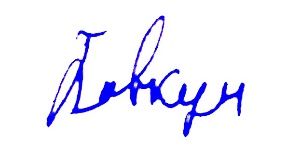 Довкун